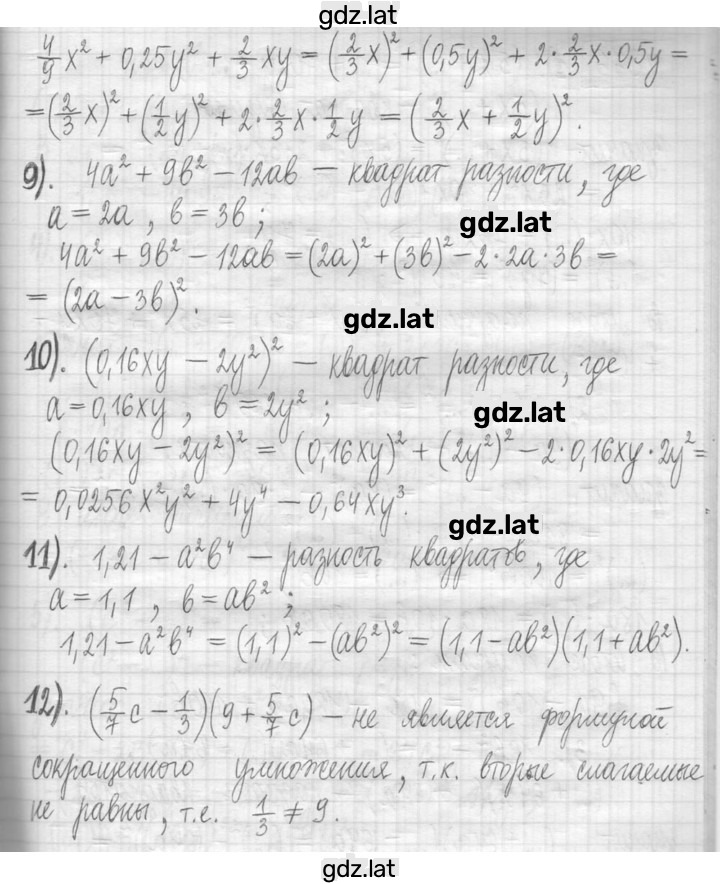 gdz.lat
4/9 x² + 0,25y² + 2/3 xy = (2/3 x)² + (0,5y)² + 2·2/3 x·0,5y =
= (2/3 x)² + (1/2 y)² + 2·2/3 x·1/2 y = (2/3 x + 1/2 y)².
9). 4a² + 9b² − 12ab — квадрат разности, где
a = 2a, b = 3b;
gdz.lat
4a² + 9b² − 12ab = (2a)² + (3b)² − 2·2a·3b =
= (2a − 3b)².
gdz.lat
10). (0,16xy − 2y²)² — квадрат разности, где
a = 0,16xy, b = 2y²;
gdz.lat
(0,16xy − 2y²)² = (0,16xy)² + (2y²)² − 2·0,16xy·2y² =
= 0,0256x²y² + 4y⁴ − 0,64xy³.
gdz.lat
11). 1,21 − a²b⁴ — разность квадратов, где
a = 1,1, b = ab²;
1,21 − a²b⁴ = (1,1)² − (ab²)² = (1,1 − ab²)(1,1 + ab²).
12). (5/7 c − 1/3)(9 + 5/7 c) — не является формулой
сокращенного умножения, т.к. вторые слагаемые
не равны, т.е. 1/3 ≠ 9.
gdz.lat